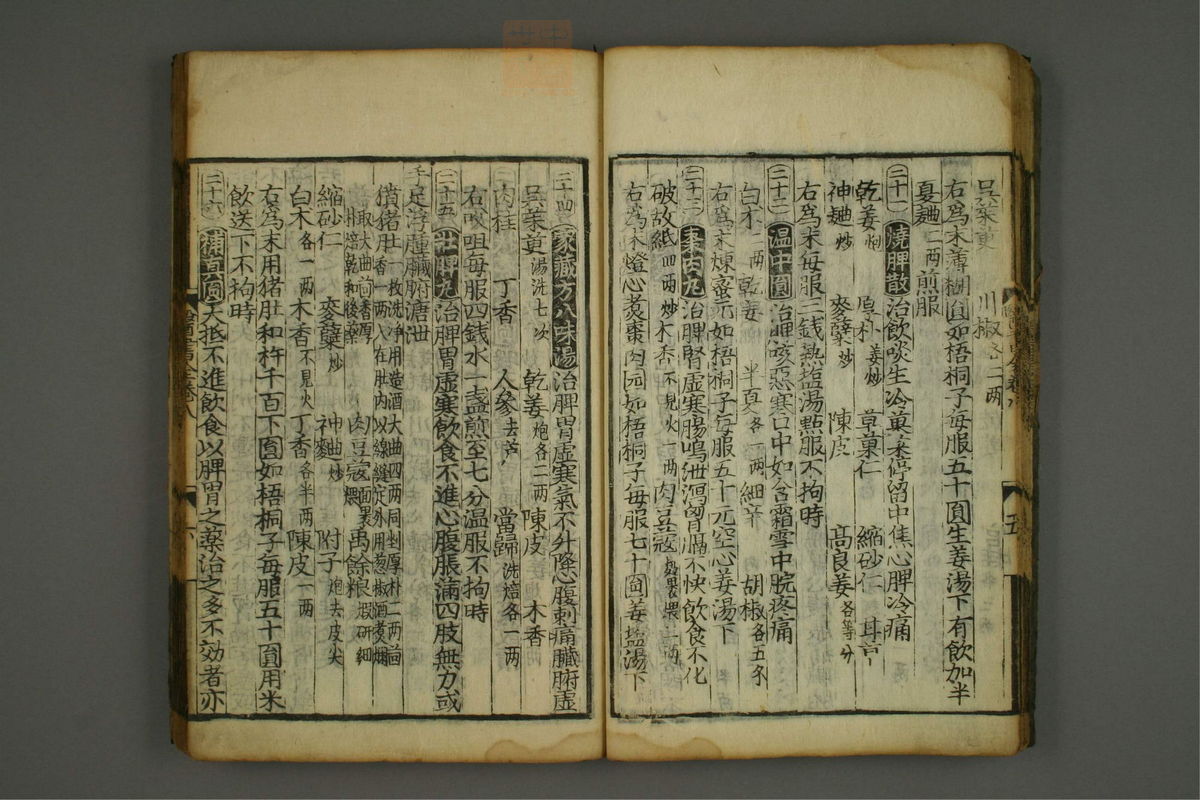 吳茱萸　川椒各二兩
右爲末薄糊圓如梧桐子每服五十圓生姜湯下有飲加半
夏麯一兩煎服
二十一 燒脾散 治飲啖生冷菓菜停留中焦心脾冷痛
乾姜炮　厚朴姜炒　草菓仁　縮砂仁　甘草
神麯炒　麥蘖炒　陳皮　高良姜各等分
右爲末每服三錢熱塩湯點服不拘時
二十二 温中圓 治脾咳惡寒口中如含霜雪中脘疼痛
白朮二兩　乾姜　半夏各一兩　細辛　胡椒各五錢
右爲末煉蜜元如梧桐子每服五十元空心姜湯下
二十三 棗肉丸 治脾腎虛寒腸鳴泄瀉胷膈不快飲食不化
破故紙四兩炒　木香不見火一兩　肉豆蔲麪裹煨二兩
右爲末燈心煑棗肉圓如梧桐子每服七十圓姜塩湯下
二十四 家藏方八味湯 治脾胃虛寒氣不升降心腹刺痛臟腑虛
吳茱萸湯洗七次　乾姜炮各二兩　陳皮　木香
肉桂　丁香　人參去芦　當歸洗焙各一兩
右㕮咀每服四錢水一盞煎至七分温服不拘時
二十五 壯脾丸 治脾胃虛寒飲食不進心腹脹滿四肢無力或
手足浮腫臟腑溏泄
獖猪肚一枚洗淨用造酒大曲四兩同剉厚朴二兩茴
香一兩入在肚內以線縫定外用葱椒酒煑爛
取大曲茴香厚
朴焙乾和後藥　肉豆蔲麵裹煨　禹餘粮煅研細
縮砂仁　麥蘖炒　神麯炒　附子炮去皮尖
白朮各一兩　木香不見火　丁香各半兩　陳皮一兩
右爲末用猪肚和杵千百下圓如梧桐子每服五十圓用米
飲送下不拘時
二十六 補眞圓 大抵不進飲食以脾胃之藥治之多不効者亦